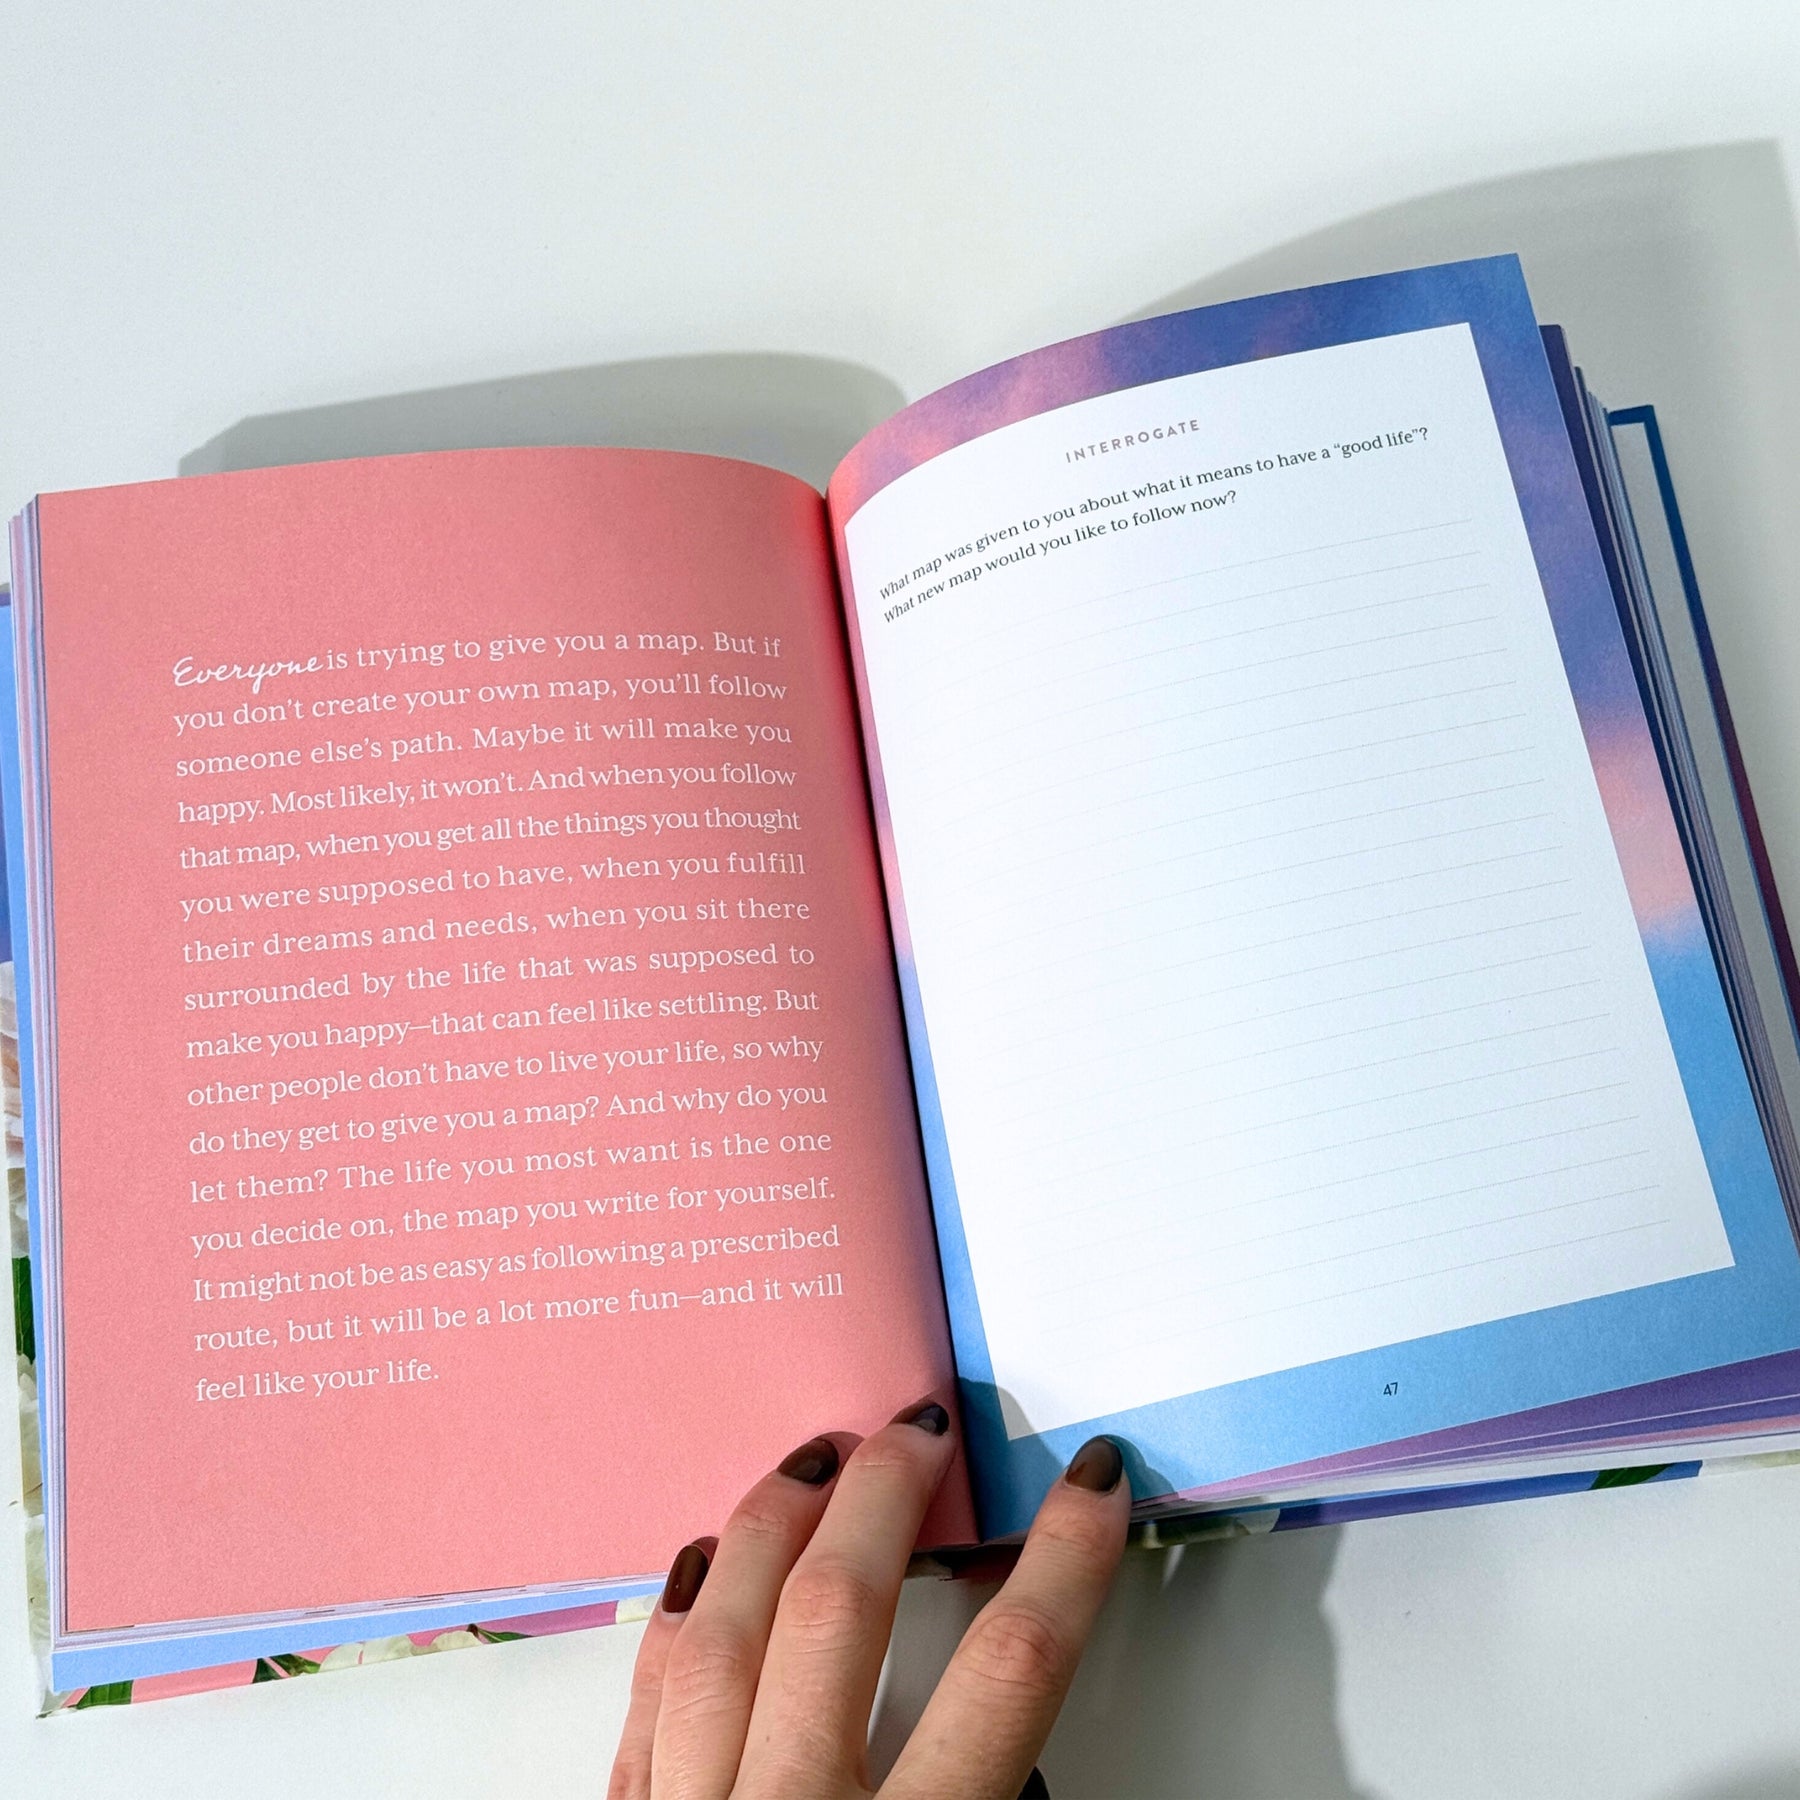 Everyone is trying to give you a map. But if
you don't create your own map, you'll follow
someone else's path. Maybe it will make you
happy. Most likely, it won't. And when you follow
that map, when you get all the things you thought
you were supposed to have, when you fulfill
their dreams and needs, when you sit there
surrounded by the life that was supposed to
make you happy—that can feel like settling. But
other people don't have to live your life, so why
do they get to give you a map? And why do you
let them? The life you most want is the one
you decide on, the map you write for yourself.
It might not be as easy as following a prescribed
route, but it will be a lot more fun—and it will
feel like your life.
INTERROGATE
What map was given to you about what it means to have a “good life”?
What new map would you like to follow now?
47